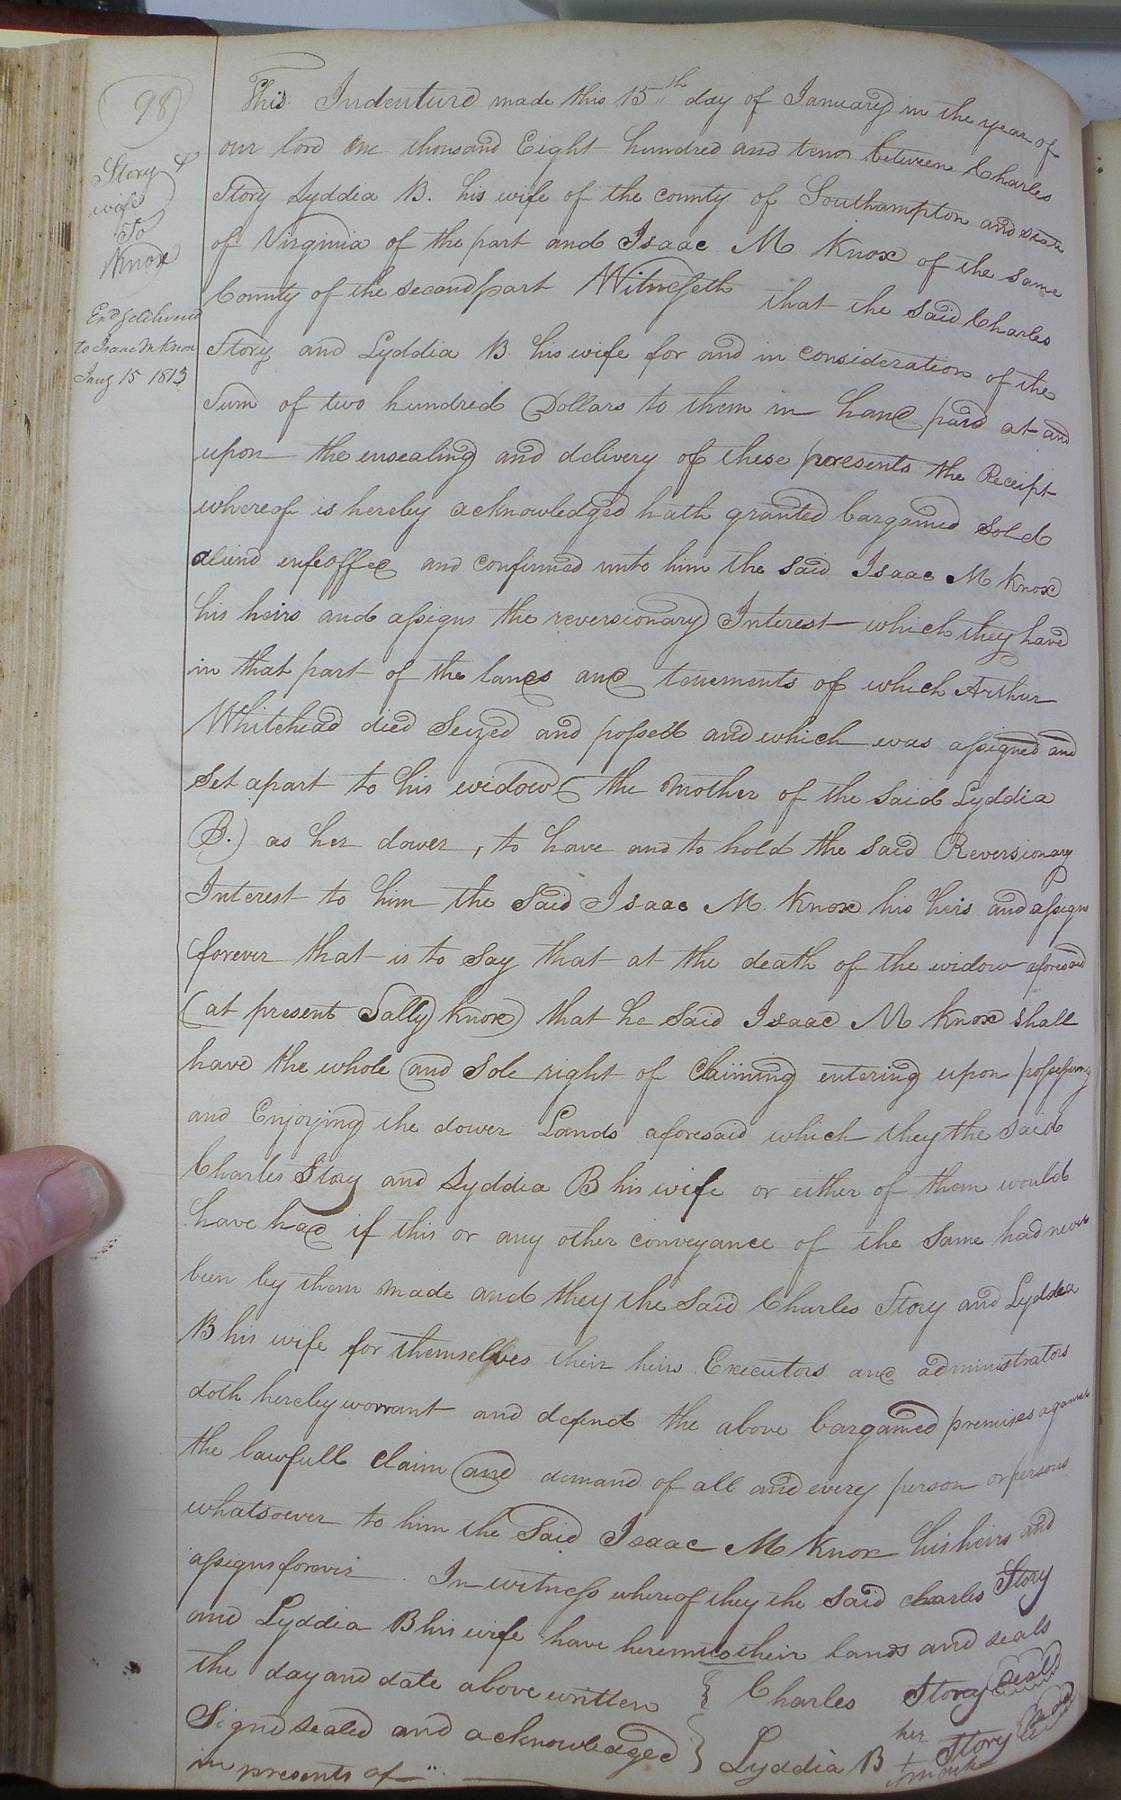 98
Story &
wife
To
Knox
Exd & delivered
to Isaac M Knox
Jany 15 1813
This Indenture made this 15th day of January in the year of
our lord One thousand Eight hundred and tenn between Charles
Story Lyddia B. his wife of the county of Southampton and state
of Virginia of the part and Isaac M Knox of the same
County of the second part Witnesseth that the said Charles
Story and Lyddia B his wife for and in consideration of the
Sum of two hundred Dollars to them in hand paid at and
upon the ensealing and delivery of these presents the Receipt
whereof is hereby acknowledged hath granted bargained sold
aliend enfeoffed and confirmed unto him the said Isaac M Knox
his heirs and assigns the reversionary Interest which they have
in that part of the lands and tenements of which Arthur
Whitehead died Seized and possest and which was assigned and
Set apart to his widow (the Mother of the said Lyddia
B.) as her dower, to have and to hold the said Reversionary
Interest to him the Said Isaac M. Knox his heirs and assigns
forever that is to say that at the death of the widow aforesaid
(at present Sally Knox) that he said Isaac M Knox shall
have the whole and Sole right of Claiming entering upon possessing
and Enjoying the dower Lands aforesaid which they the said
Charles Story and Lyddia B his wife or either of them would
have had if this or any other conveyance of the same had never
been by them made and they the said Charles Story and Lyddia
B his wife for themselves their heirs Executors and administrators
doth hereby worrant and defend the above bargained premises against
the lawfull claim and demand of all and every person or persons
whatsoever to him the Said Isaac M Knox his heirs and
assigns forever. In witness whereof they the said charles Story
and Lyddia B his wife have hereunto their hands and seals
the day and date above written } Charles Story (seal)
Signd sealed and acknowledged } Lyddia B her + mark Story (seal)
in presents of